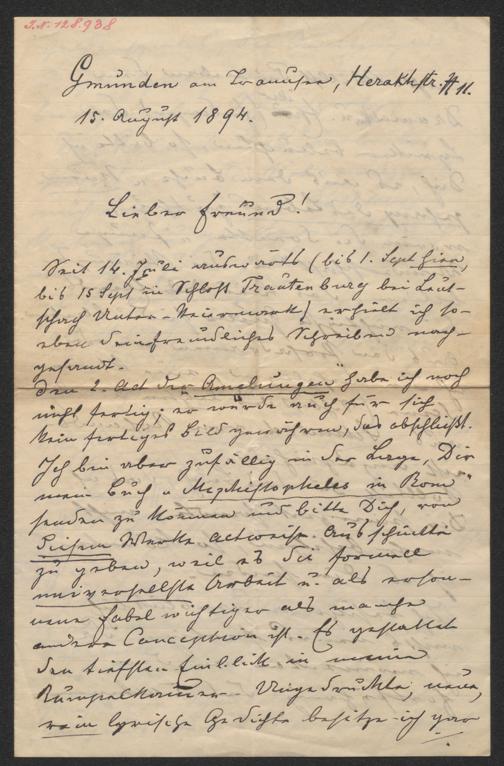 J.N. 128.938
Gmunden am Traunsee, Herakhstr. # 11.
15. August 1894.
Lieber Freund!
Seit 14. Juli auswärts (bis 1. Sept hier,
bis 15 Sept in Schloß Trautenburg bei Leut-
schach Unter-Steiermark) erhielt ich so-
eben dein freundliches Schreiben nach-
gesandt.
Den 2. Act der "Amelungen" habe ich noch
nicht fertig; er würde auch für sich
kein fertiges Bild gewähren, das abschließt.
Ich bin aber zufällig in der Lage, Dir
mein Buch "Mephistopheles in Rom"
senden zu können und bitte Dich, von
diesem Werke actweise Ausschnitte
zu geben, weil es die formell
universellste Arbeit u. als erson-
nene Fabel wichtiger als manche
andere Conception ist. Es gestattet
den tiefsten Einblick in meine
Rumpelkammer. Ungedruckte, neue,
rein lyrische Gedichte besitze ich gar